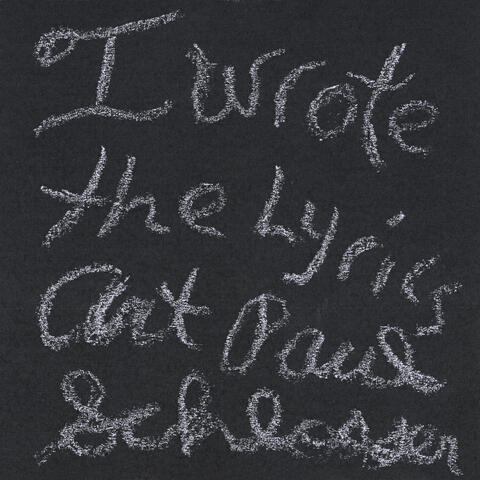 I wrote
the Lyrics
Art Paul
Schlosser